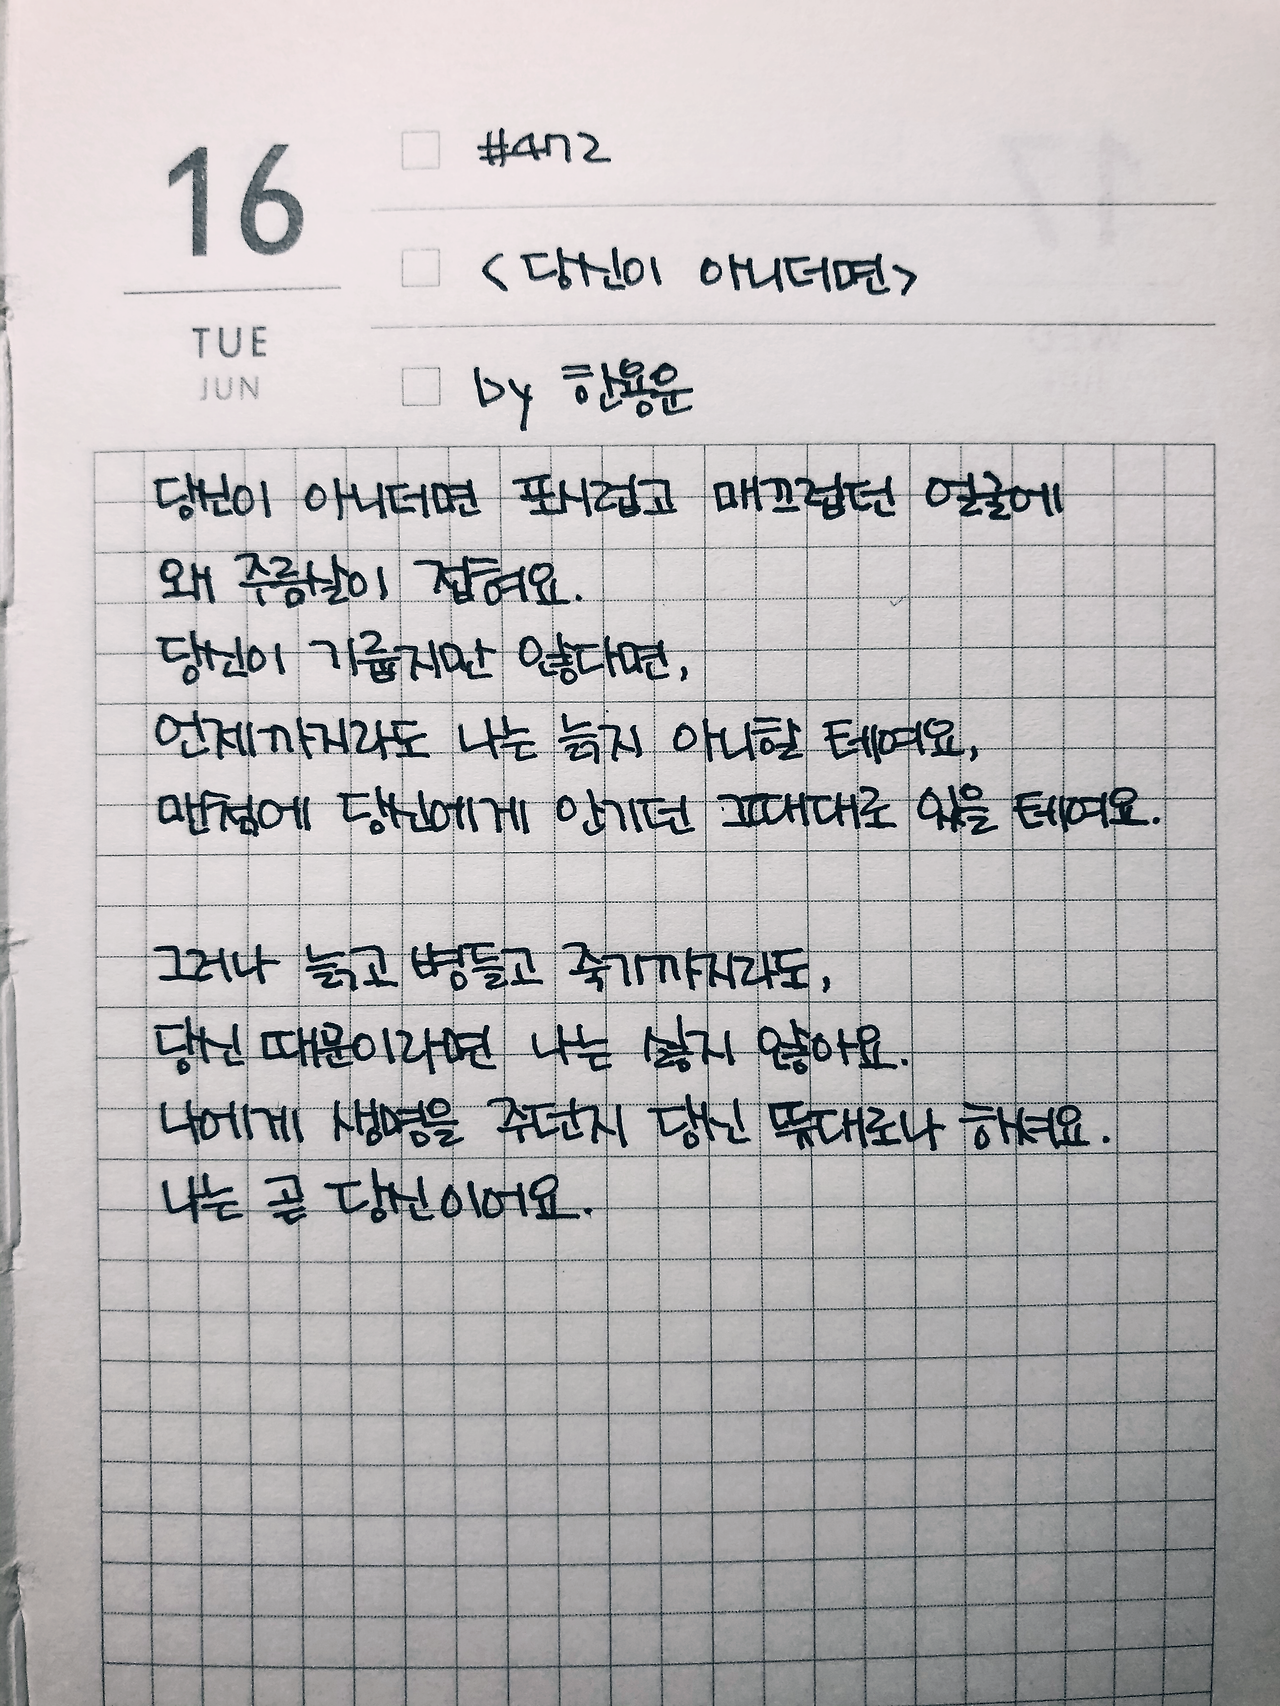 16
TUE
JUN
#472
<당신이 아니더면>
by 한용운
당신이 아니더면 포시럽고 매끄럽던 얼굴에
왜 주름살이 접혀요.
당신이 기룹지만 않다면,
언제까지라도 나는 늙지 아니할 테여요,
맨첨에 당신에게 안기던 그때대로 있을 테여요.
그러나 늙고 병들고 죽기까지라도,
당신 때문이라면 나는 싫지 않아요.
나에게 생명을 주던지 당신 뜻대로나 하셔요.
나는 곧 당신이어요.